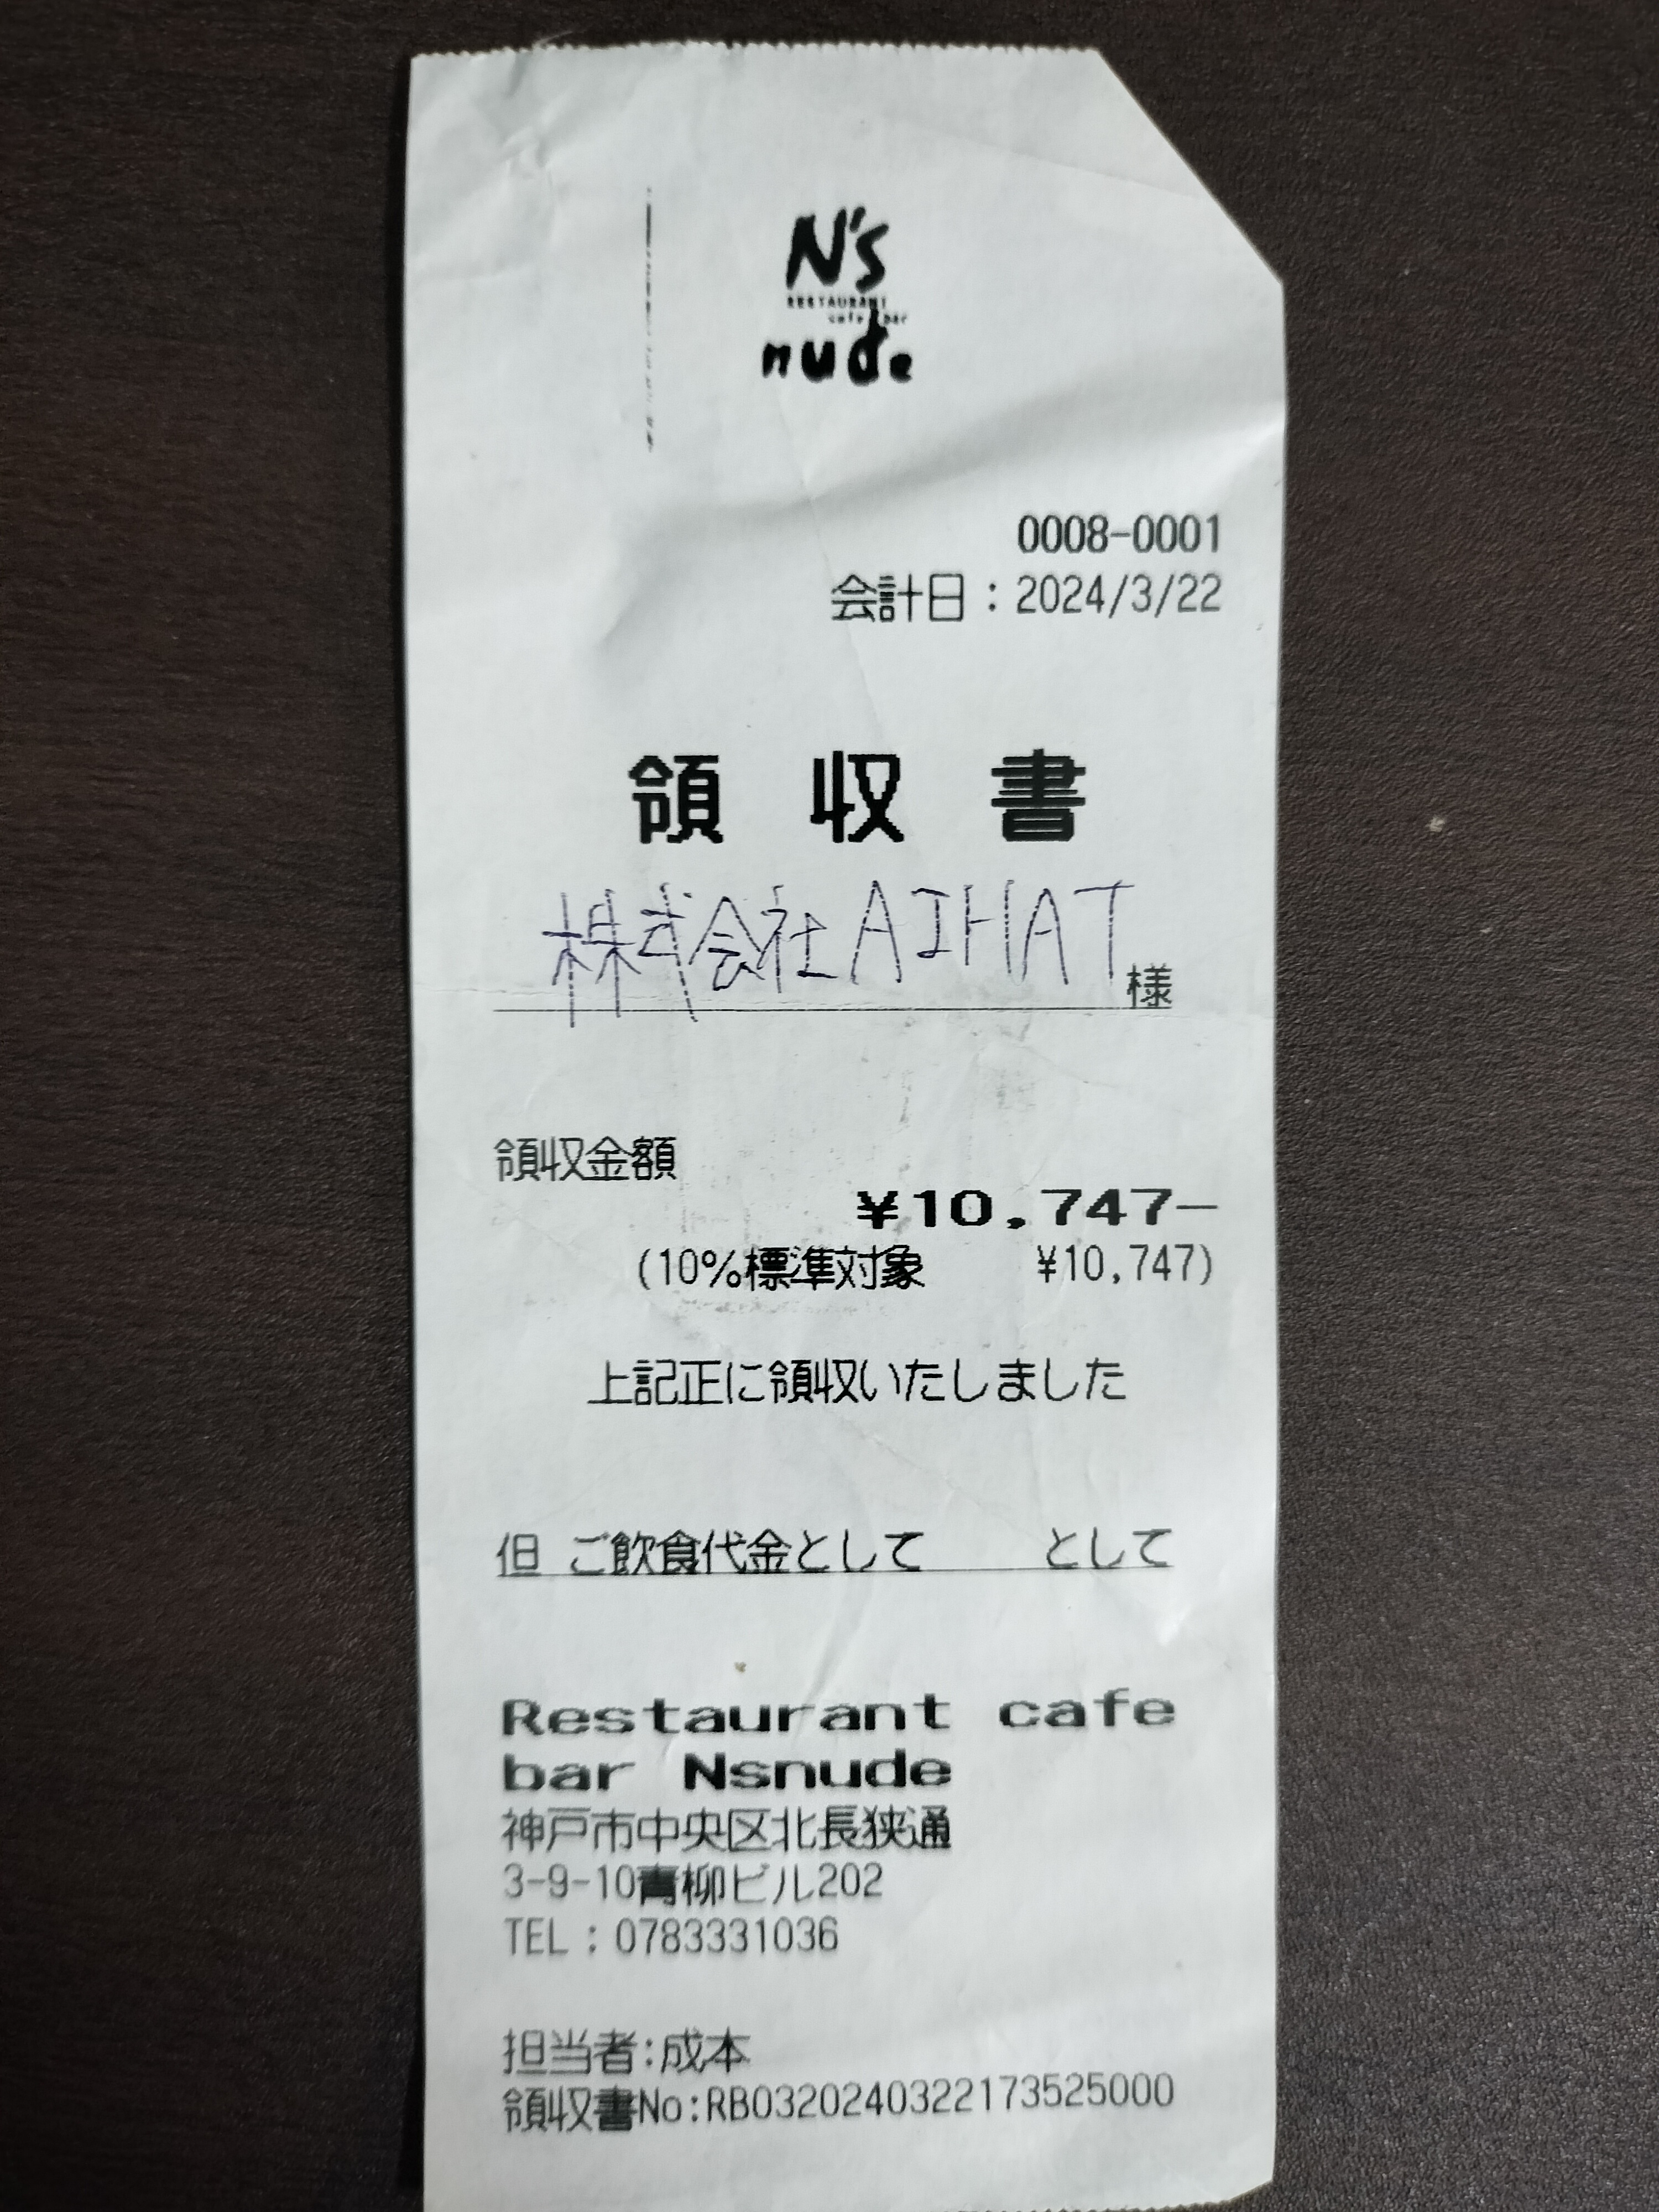 N's
RESTAURANT
cafe bar
nude
0008-0001
会計日：2024/3/22
領 収 書
株式会社AIHAT 様
領収金額
¥10,747-
(10%標準対象 ¥10,747)
上記正に領収いたしました
但 ご飲食代金として として
Restaurant cafe
bar Nsnude
神戸市中央区北長狭通
3-9-10青柳ビル202
TEL：0783331036
担当者:成本
領収書No:RB0320240322173525000